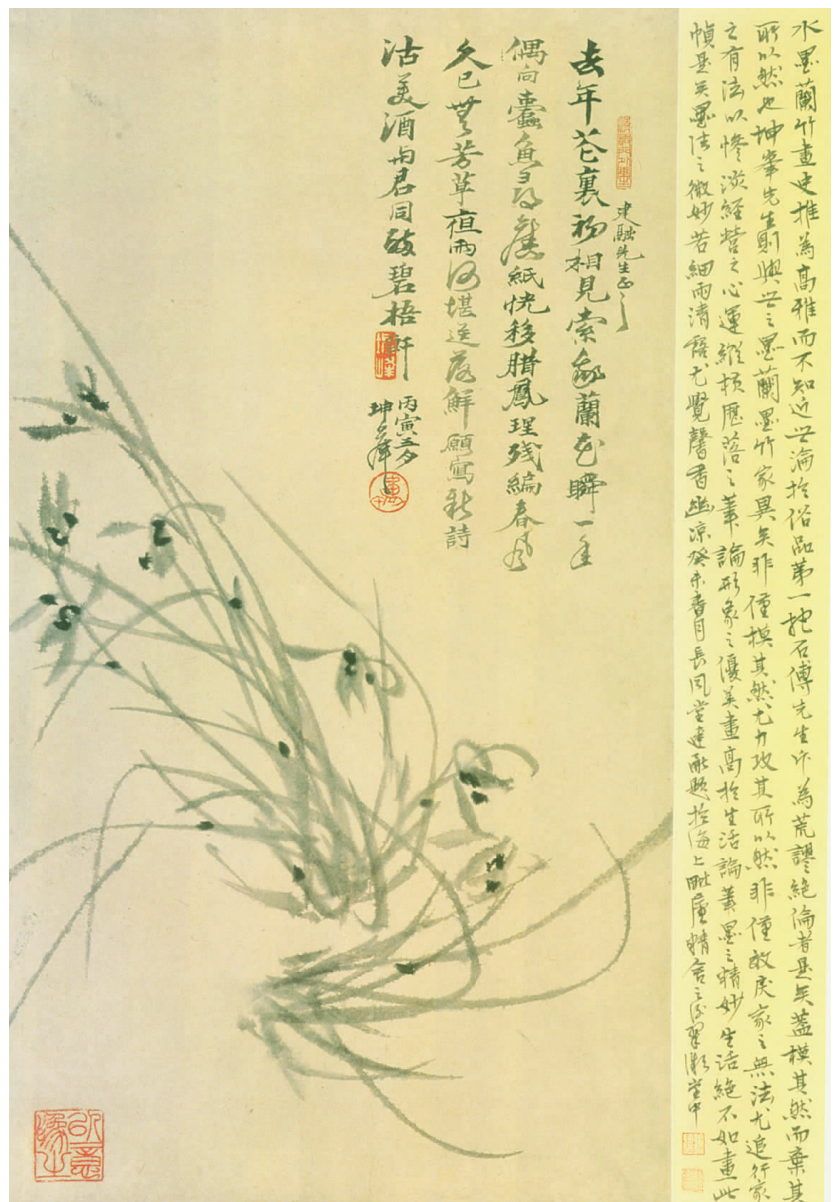 水墨蘭竹畫史推為高雅而不知近世淪於俗品第一抱石傅先生斥為荒謬絕倫者是矣蓋模其然而棄其
所以然也坤峯先生則與世之墨蘭墨竹家異矣非僅模其然尤力攻其所以然非僅效戾家之無法尤追行家
之有法以慘淡經營之心運縱橫歷落之筆論形象之優美畫高於生活論筆墨之精妙生活絕不如畫此
幀是矣墨法之微妙若細雨清語尤覺馨香幽涼癸未月長風堂建融題於海上毗廬精舍之後翠微堂中
建融先生正之
去年花裏初相見索我蘭花瞬一年
偶向蠹魚尋舊紙快移腊鳳理殘編春風
久已無芳草夜雨何堪送落鮮願寫新詩
沽美酒與君同醉碧梧軒
丙寅五夕
坤峰